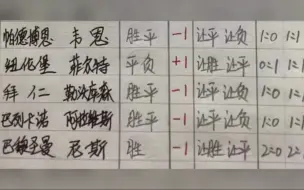 帕德博恩 韦恩 胜平 -1 让平 让负 1:0 1:1
纽伦堡 菲尔特 平负 +1 让胜 让平 0:1 1:1
拜仁 勒沃库森 胜平 -1 让平 让负 1:0 1:1
巴列卡诺 阿拉维斯 平胜 -1 让平 让负 1:0 1:1
巴赫圣曼 尼斯 胜 -1 让胜 让平 2:0